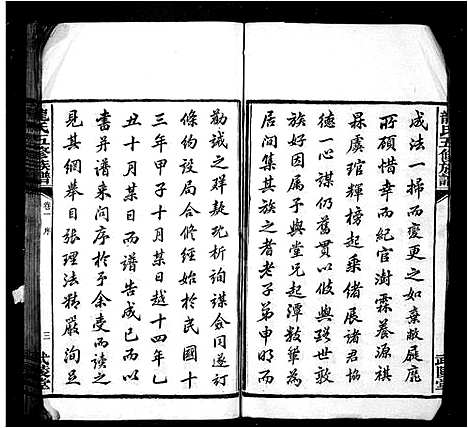 成法一掃而變更之如棄敝屣龐
碩惜幸而紀官澍霖養源祺
虞琯輝榜起乘緒展諸君協
德一心謀仍舊貫以與瑛世敦
族好因屬予與堂兄起潭教肇為
居間集其族之耆老子弟申明而
勸誡之群欵玩析詢謀僉同遂訂
條約設局合修經始於民國十
三年甲子十月某日越十四年乙
丑十月某日而譜告成已而以
書并譜來問序於予余受而讀之
見其網舉目張理法精嚴洵足
龍氏五修族譜
卷一 序
三
武陵堂
龍氏五修族譜
武陵堂